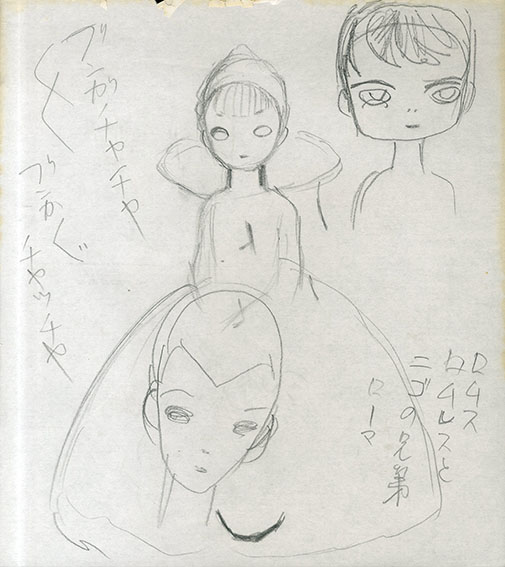 ロムス
ロムルスと
ニゴの兄弟
ローマ
ブンガチャチャ
〱
ブンガぐチャッチャ